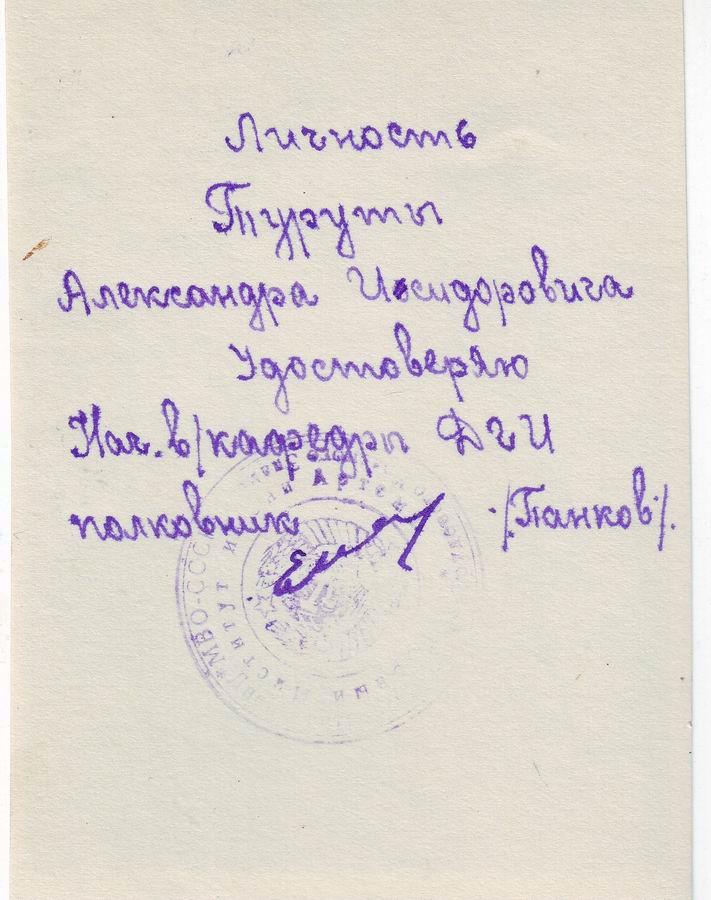 Личность
Туруты
Александра Исидоровича
Удостоверяю
Нач. в/кафедры ДГИ
полковник /Панков/.
МВО-СССР